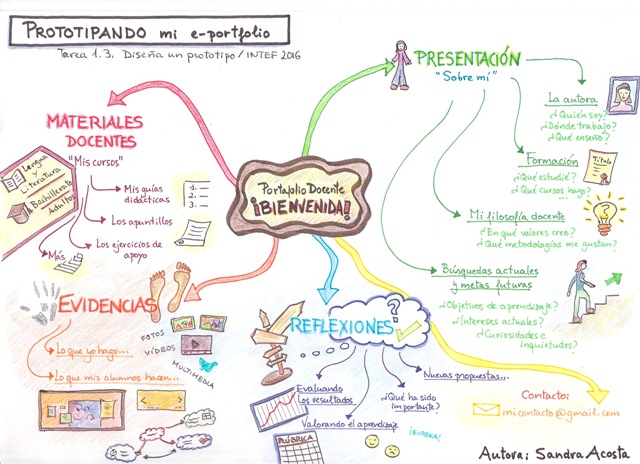 PROTOTIPANDO mi e-portfolio
Tarea 1.3. Diseña un prototipo / INTEF 2016
PRESENTACIÓN
"Sobre mí"
La autora
¿Quién soy?
¿Dónde trabajo?
¿Qué enseño?
Formación
¿Qué estudié?
¿Qué cursos hago?
Título
Mi filosofía docente
¿En qué valores creo?
¿Qué metodologías me gustan?
Búsquedas actuales
y metas futuras
¿Objetivos de aprendizaje?
¿Intereses actuales?
¿Curiosidades e
inquietudes?
MATERIALES
DOCENTES
"Mis cursos"
Lengua
y
Literatura
Bachillerato
Adultos
Mis guías
didácticas
1.
2.
3.
Los apuntillos
Los ejercicios de
apoyo
Más
Portafolio Docente
¡BIENVENIDA!
EVIDENCIAS
Lo que yo hago...
Lo que mis alumnos hacen...
FOTOS
VÍDEOS
MULTIMEDIA
REFLEXIONES
?
Evaluando
los resultados
Valorando el aprendizaje
RÚBRICA
¿Qué ha sido
importante?
¡EUREKA!
Nuevas propuestas...
Contacto:
micontacto@gmail.com
Autora: Sandra Acosta